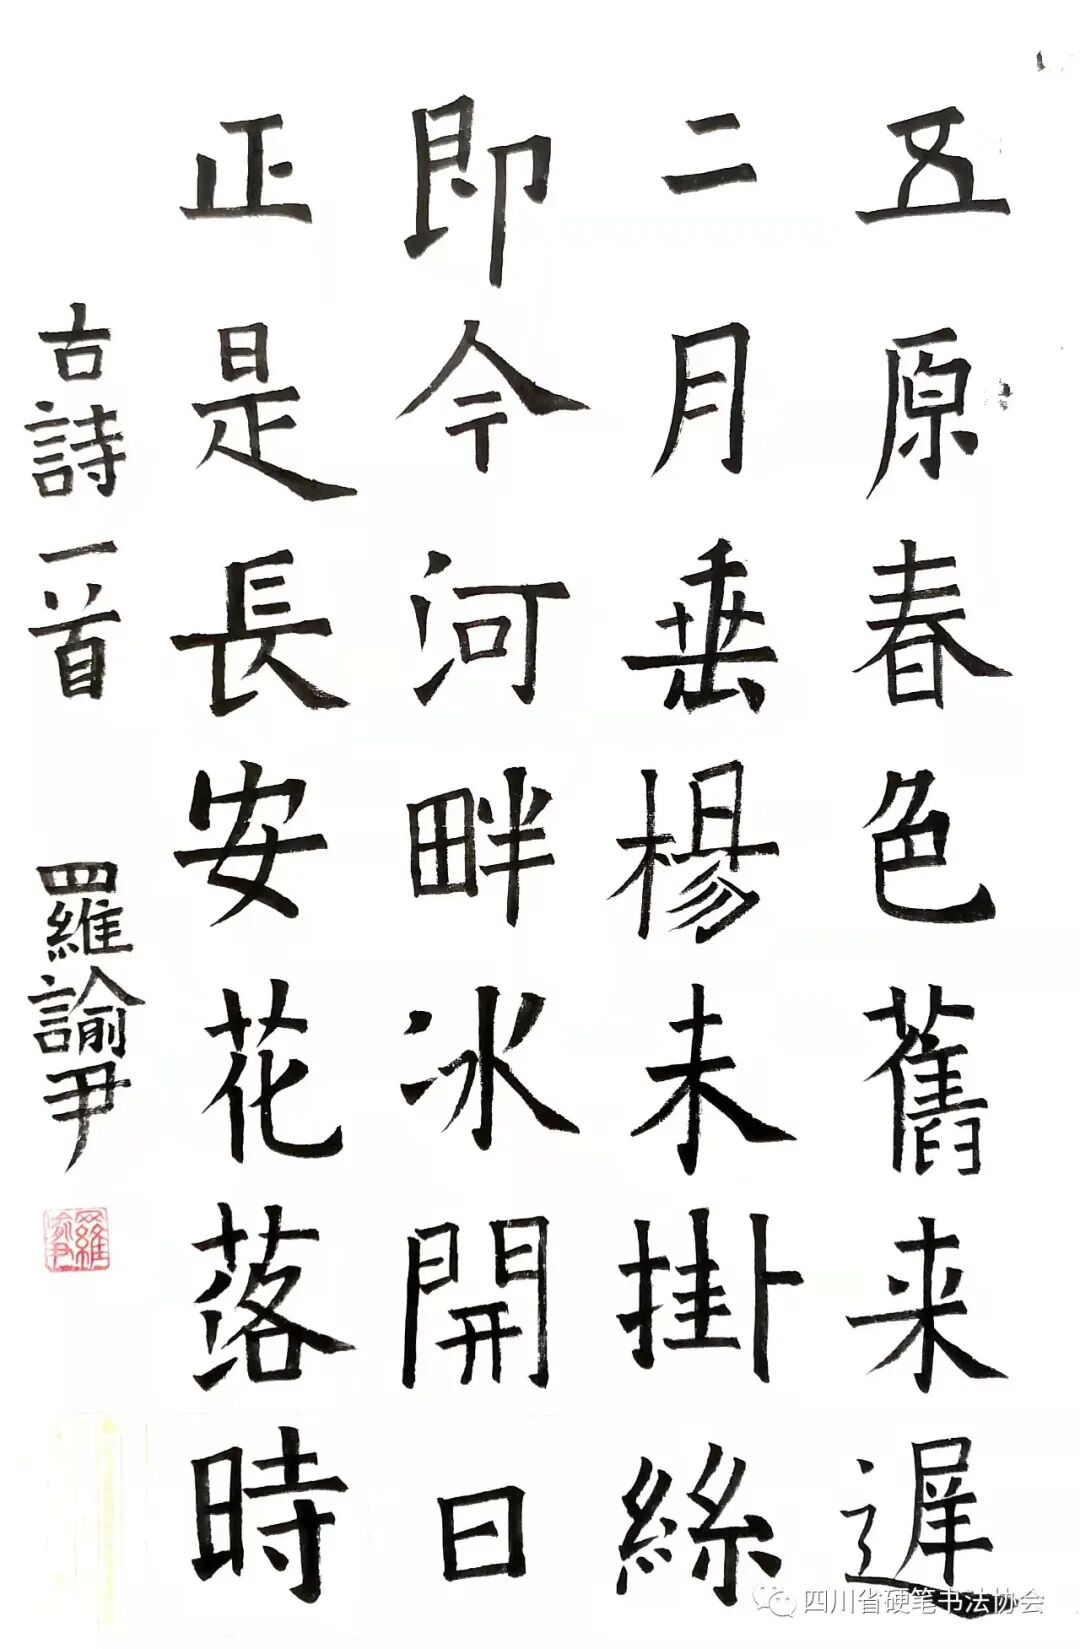 五原春色舊来遲
二月垂楊未掛絲
即今河畔冰開日
正是長安花落時
古詩一首 羅諭尹
羅諭尹
四川省硬笔书法协会